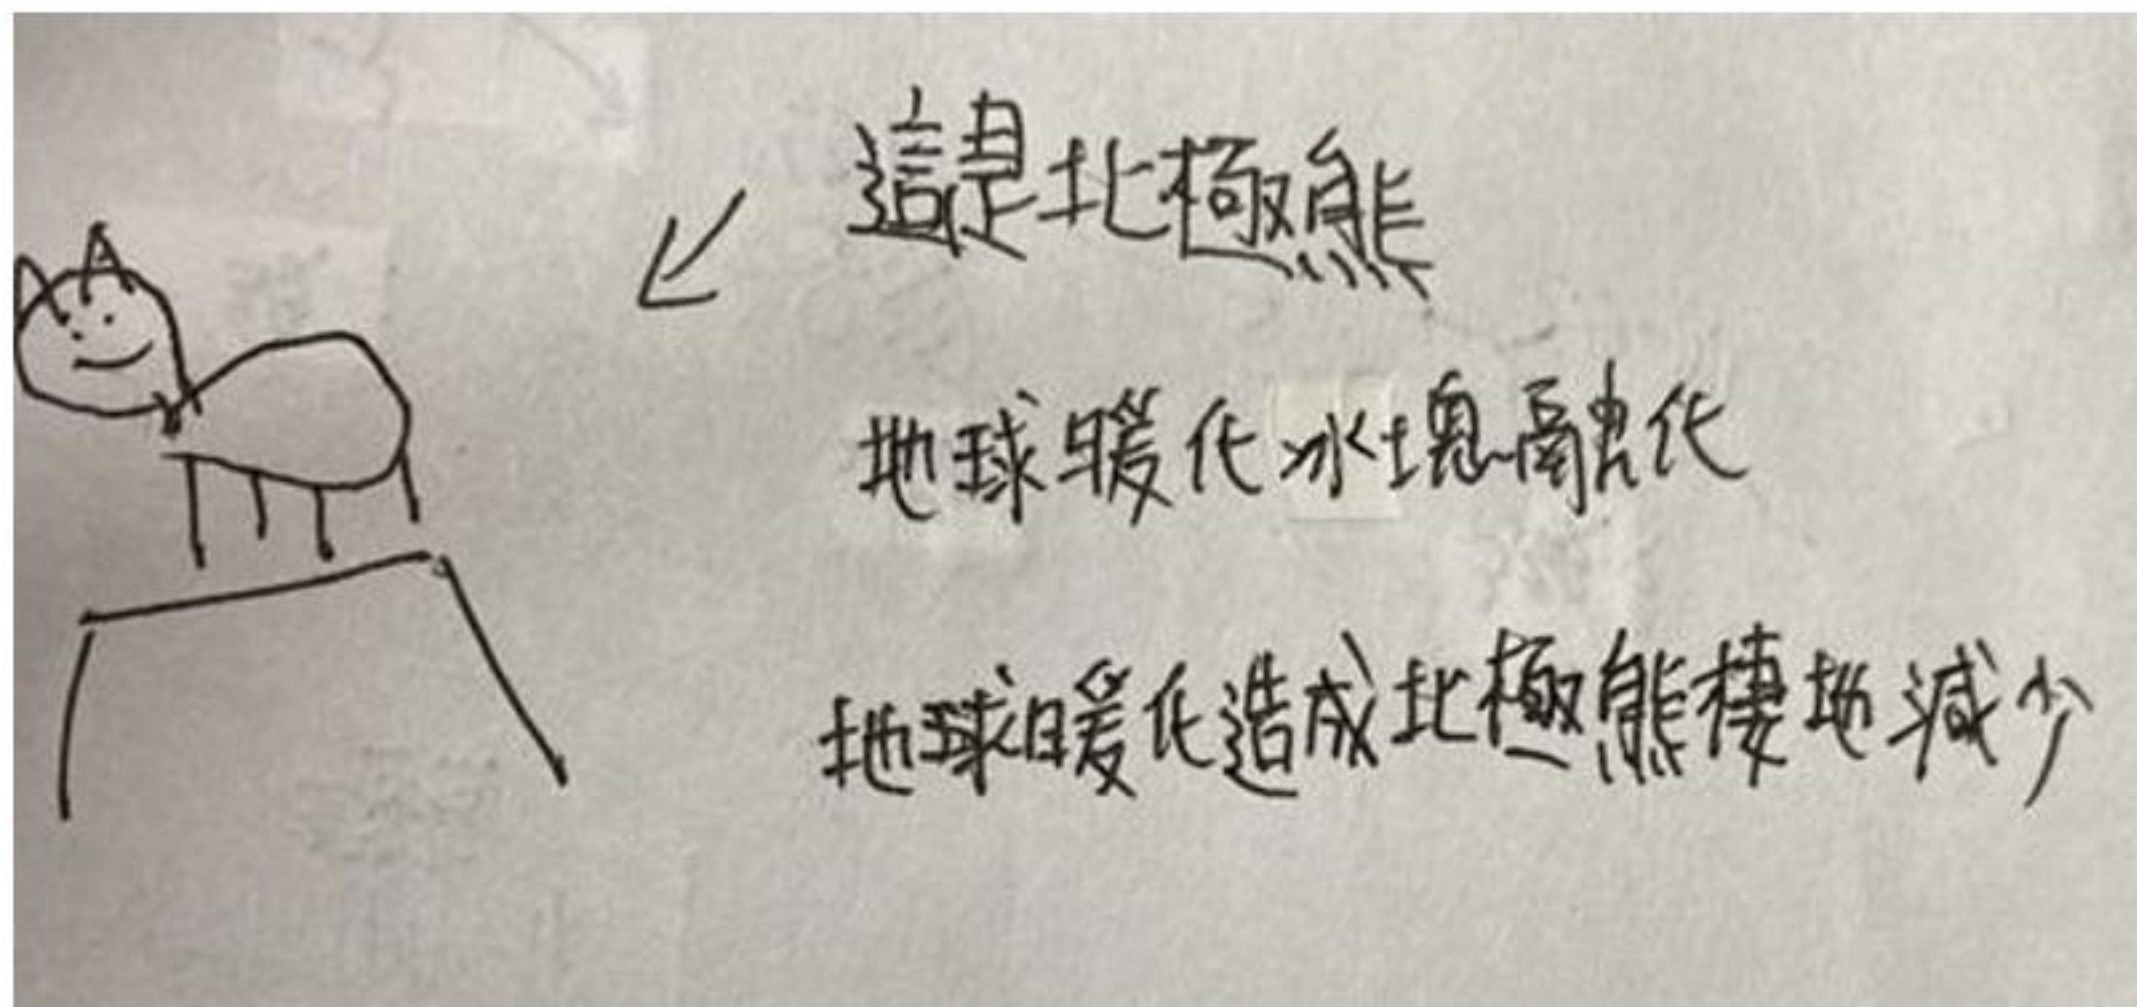 這是北極熊
地球暖化冰塊融化
地球暖化造成北極熊棲地減少